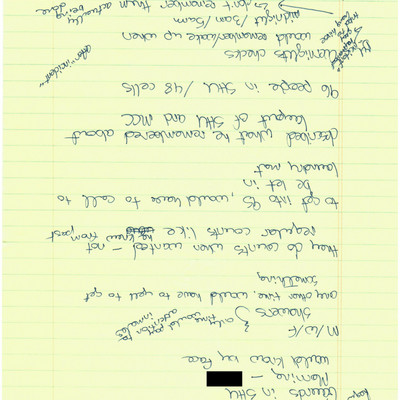 Guards in SHU
Morning -
would know by face
M/W/F showers } only time would pay attention to inmates
any other time would have to yell to get
something
they do counts when wanted - not
regular counts like he knew from past
to get into 9S, would have to call to
be let in
laundry mat
described what he remembered about
layout of SHU and MCC
96 people in SHU / 48 cells
Overnights checks
would remember/wake up when
midnight / 3am / 5am
↳ don't remember them actually
being done
after incident